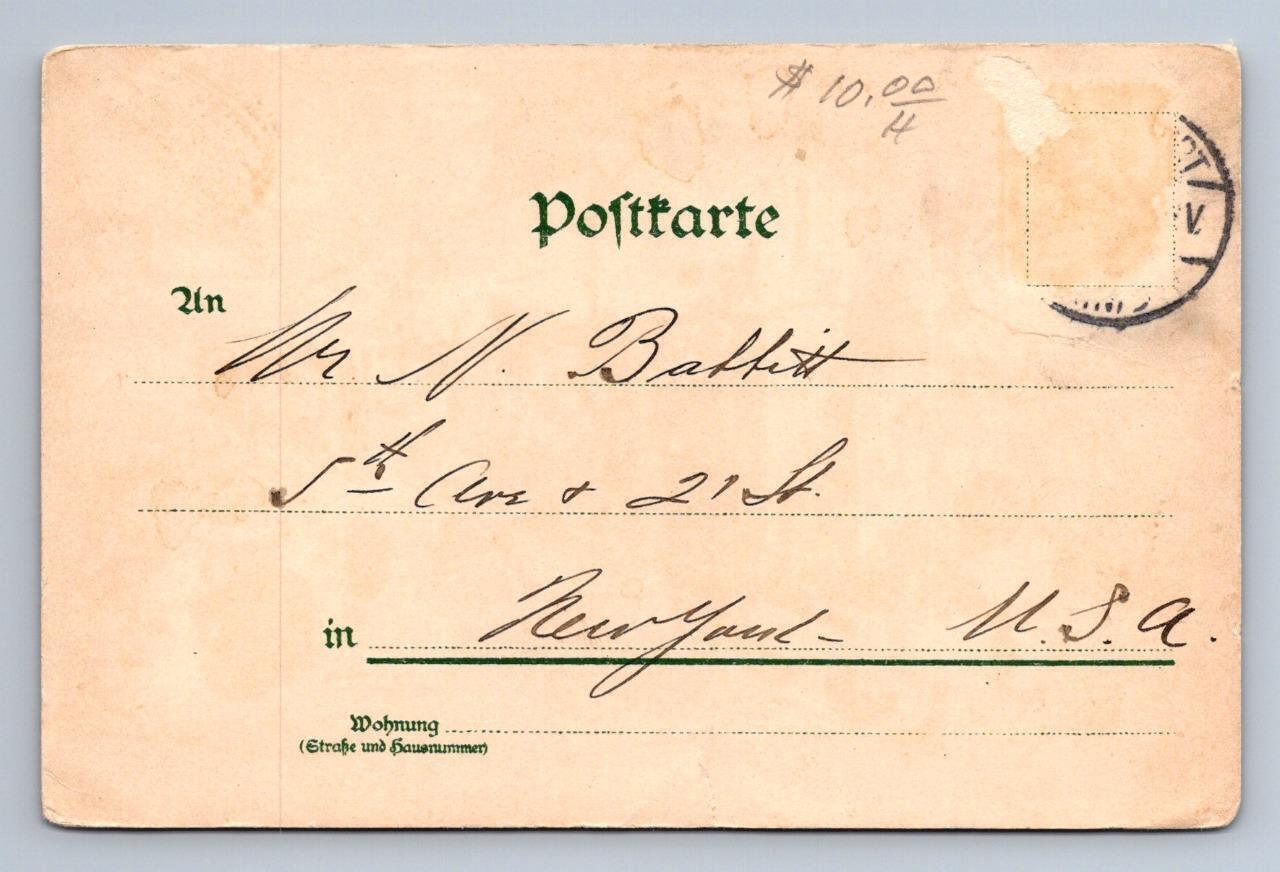 $ 10.00
4
Postkarte
An
Mr N. Babbitt
5th Ave + 21 St.
in New York - U.S.A.
Wohnung
(Straße und Hausnummer)